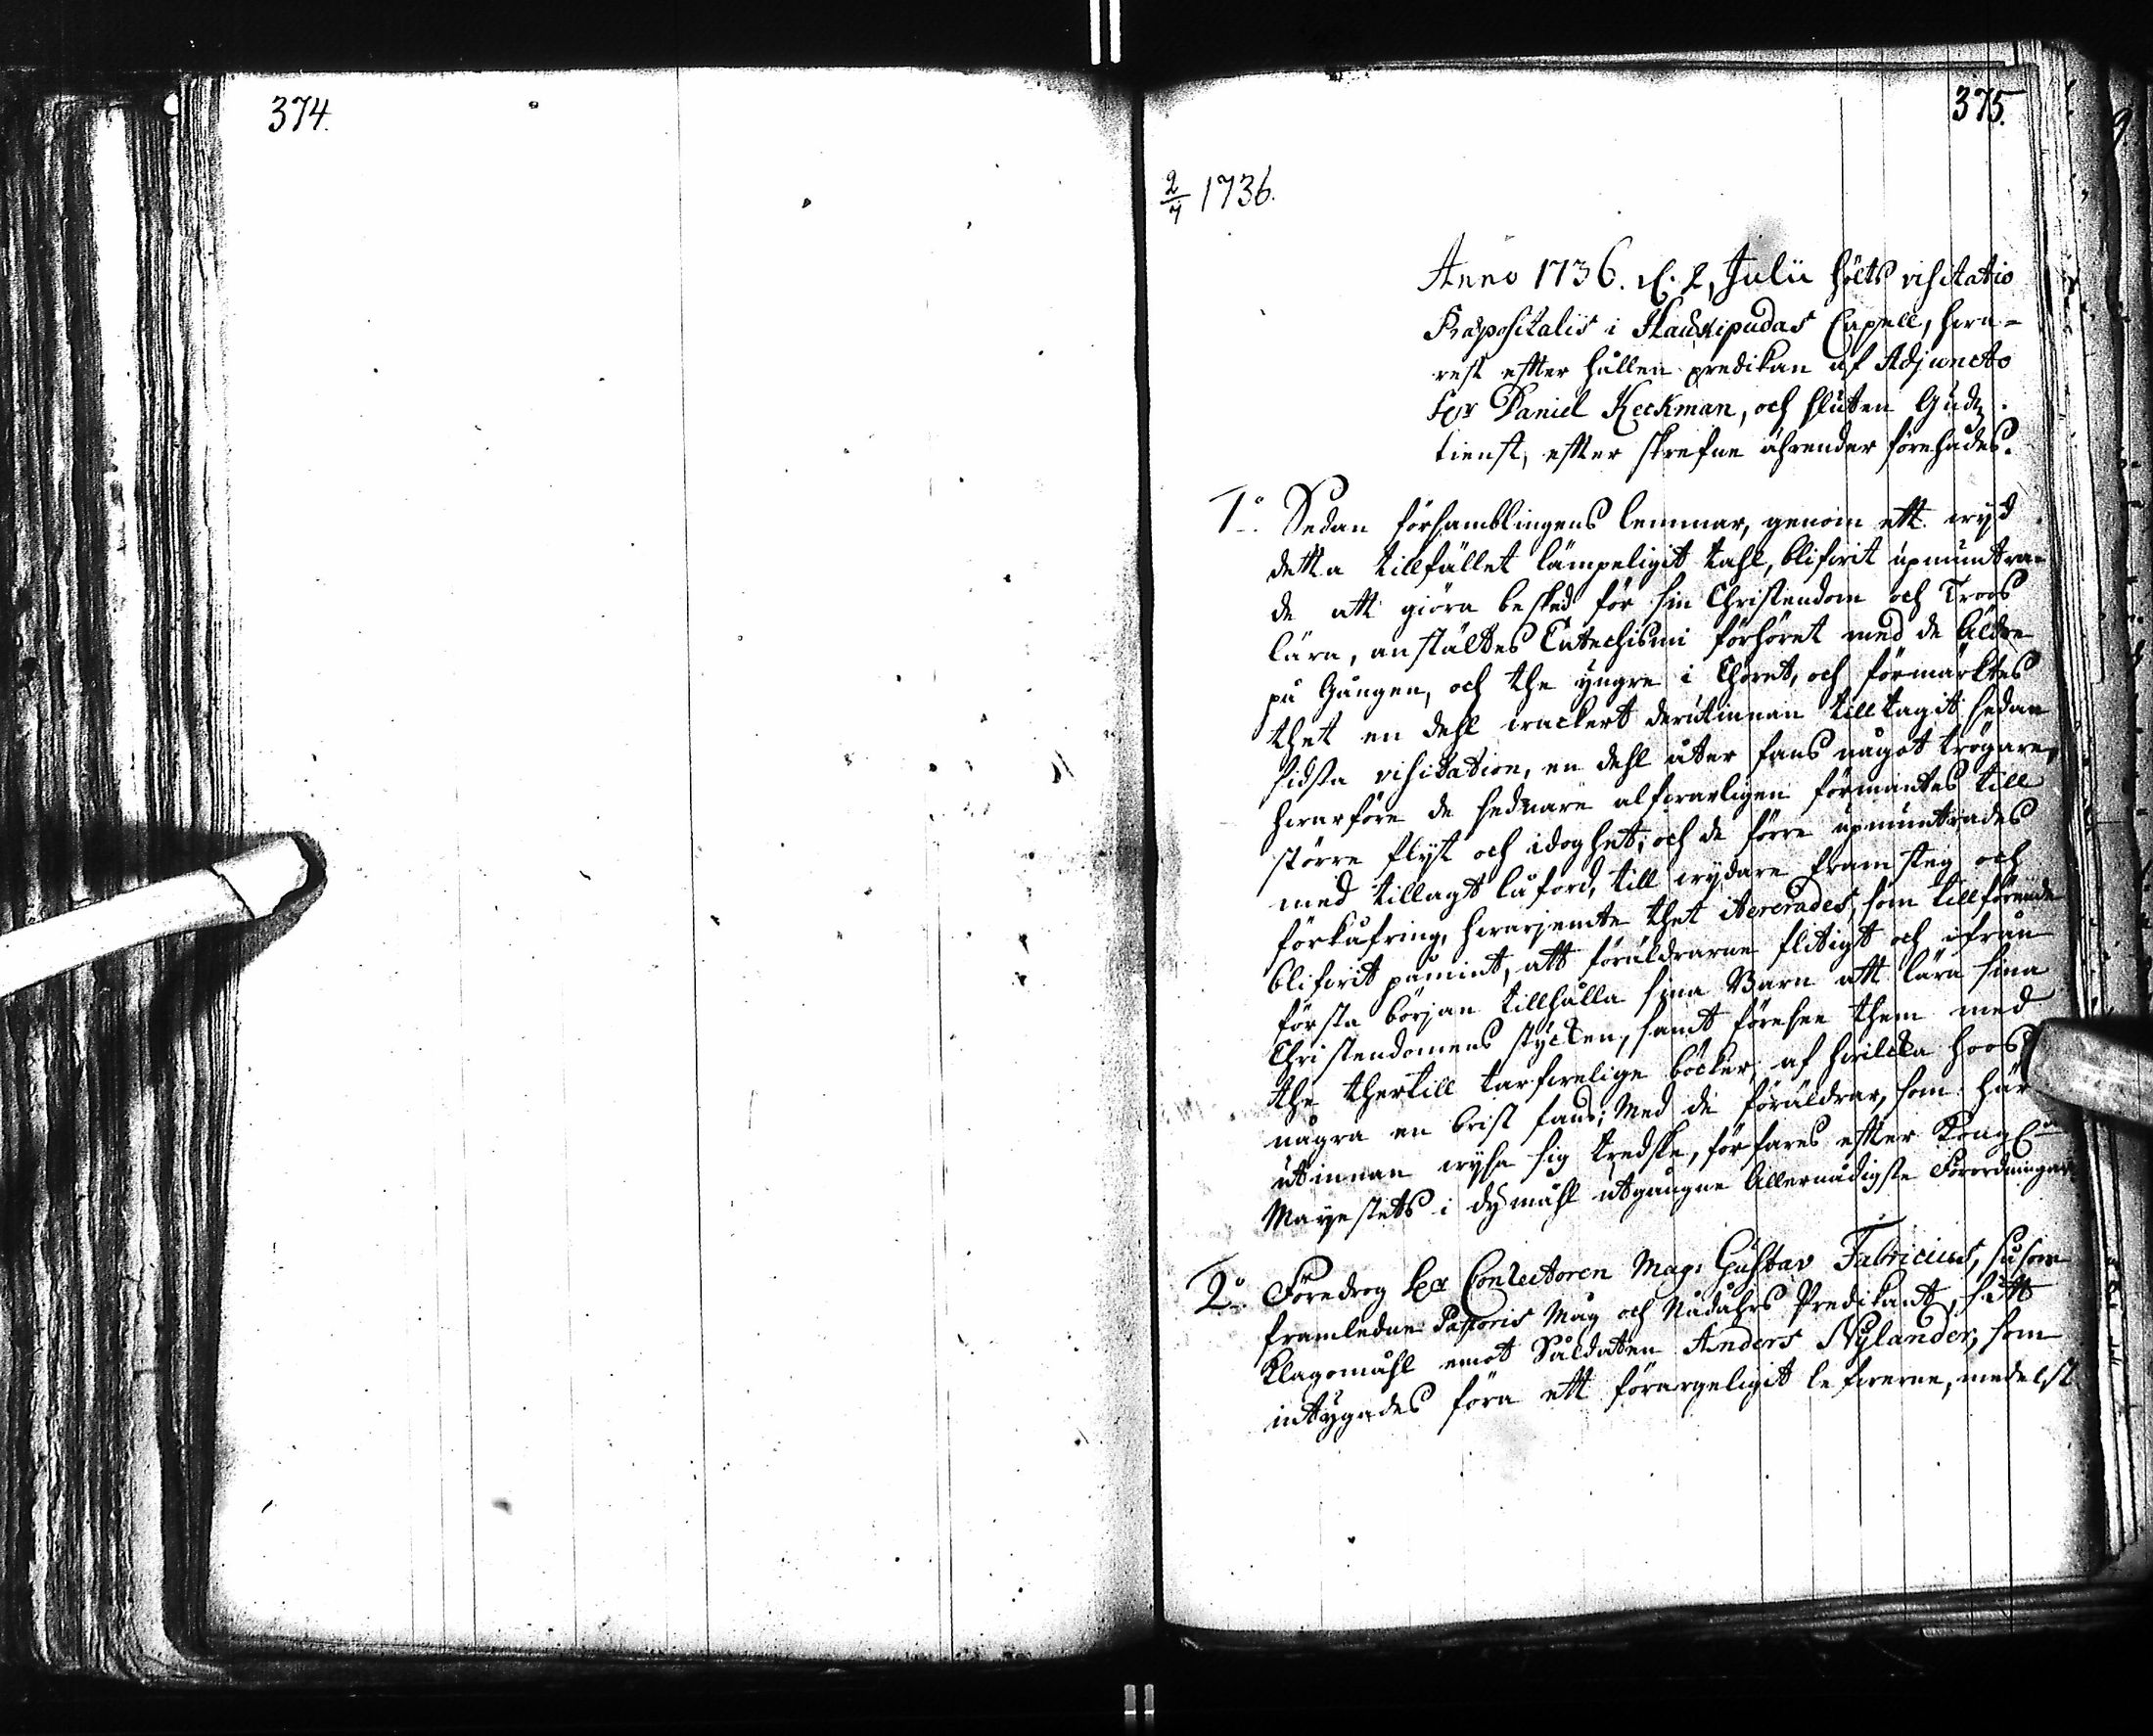 374.
375.
2/7 1736.
Anno 1736. d. 2, Julii hölts visitatio
Præpositalis i Haukipudas Capell, hwa-
rest effter hållen predikan af Adjuncto
Her Daniel Keckman, och sluten Gudz
tienst, effter skrefne ährender förehades.
1o. Sedan församblingens lemmar, genom ett wijd
detta tillfället lämpeligit tahl, blifwit upmuntra-
de att giöra besked för sin Christendom och Troos
lära, anstältes Catechismi förhöret med de äldre
på Gången, och the yngre i Choret, och förmärktes
thet en dehl wackert derutinnan tilltagit sedan
sidsta visitation, en dehl åter fans något trögare,
hwarföre de sednare alfwarligen förmantes till
större flijt och idoghet, och de förre upmuntrades
med tillagt låford, till wijdare framsteg och
förkåfring, hwarjemte thet itererades, som tillförende
blifwit påmint, att föräldrarne flitigt och ifrån
första början tillhålla sina Barn att lära sina
Christendomens stycken, samt förese them med
the thertill tarfwelige böcker, af hwilcka hoos
några en brist fans; Med de föräldrar, som här
utinnan wijsa sig tredske, förfares effter Kongl.
Mayestets i dy mähl utgångne Allernådigste Förordningar.
2o. Föredrog Her Conlectoren Mag: Gustav Fabricius, såsom
framledne Pastoris Måg och Nådåhrs Predikant, sitt
Klagomåhl emot Såldaten Anders Nylander, som
intygades föra ett förargeligit lefwerne, medelst